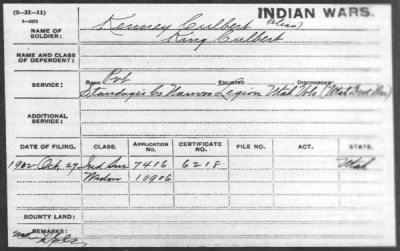 (3-32-11)
INDIAN WARS.
NAME OF SOLDIER: Kenney Culbert (alias)
King Culbert
NAME AND CLASS OF DEPENDENT:
SERVICE: RANK Pvt ENLISTED DISCHARGED
Co Nauvoo Legion Utah Vols
ADDITIONAL SERVICE:
DATE OF FILING. CLASS. APPLICATION No. CERTIFICATE No. FILE NO. ACT. STATE.
1902 Oct. 27 Ind Sur 7416 6218 Utah
Widow 10906
BOUNTY LAND:
REMARKS: